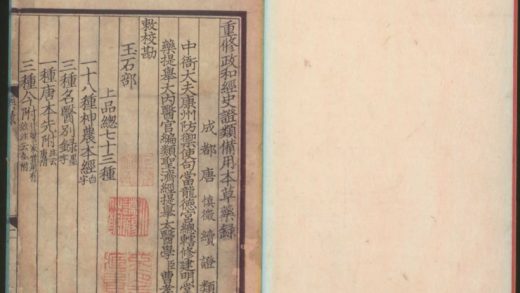 重修政和經史證類備用本草藥錄
成都唐慎微續證類
中衛大夫康州防禦使句當龍德宮總轄修建明堂
藥提舉入內醫官編類聖濟經提舉太醫學臣曹孝
敕校勘
玉石部
上品總七十三種
一十八種神農本經白字
三種名醫別錄墨字
一種唐本先附
三種今附